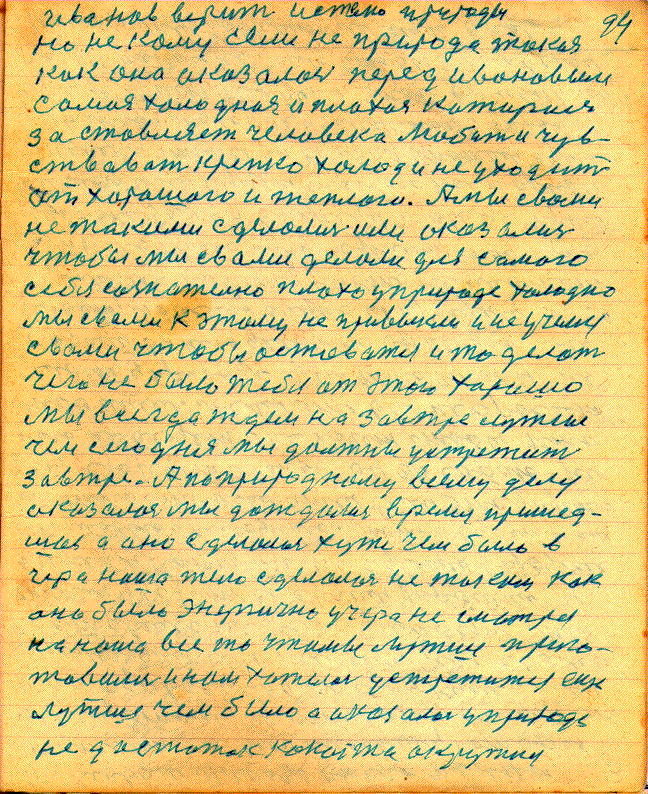 94
иванов верит истено природы
но не кому если не природа такая
как она оказалася перед ивановым
самая холодная и плохая которая
заставляет человека любит и чув-
ствават крепко холод и не уходит
от хорошого и теплого. А мы свами
не такими сделолися или оказалися
чтобы мы свами делоли для самого
себя сознателно плохо у природе холодно
мы свами к этому не привыкли и не учемся
свами чтобы оставатся и то делат
чего не было тебя от этого хорошо
мы всегда ждем на завтре лутше
чем сегодня мы должны устретит
завтре. А по природному всему делу
оказалося мы дождалися время пришед-
шая а оно сделолося хуже чем было в
чера наша тело сделолося не таким как
оно было энергично учера не смотря
на наша все то что мы лутше приго-
товили и нам хотелося устретится еще
лутше чем было а оказалося у природе
не достаток какойта окружил